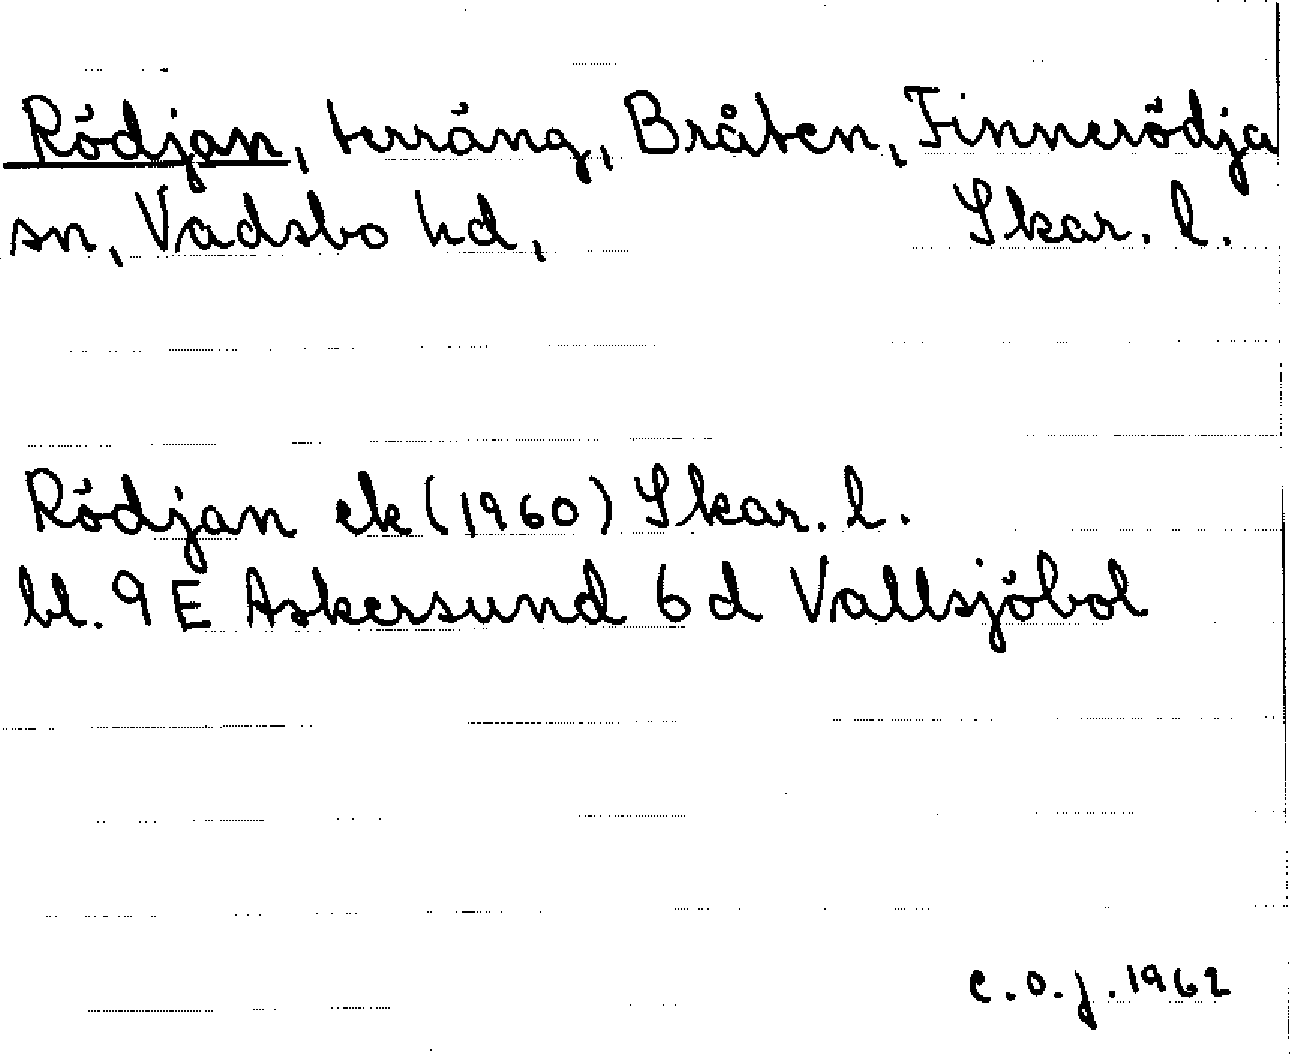 Rödjan, terräng, Bråten, Finnerödja
sn, Vadsbo hd, Skar. l.
Rödjan ek (1960) Skar. l.
bl. 9 E Askersund 6 d Vallsjöbol
C.O.J. 1962